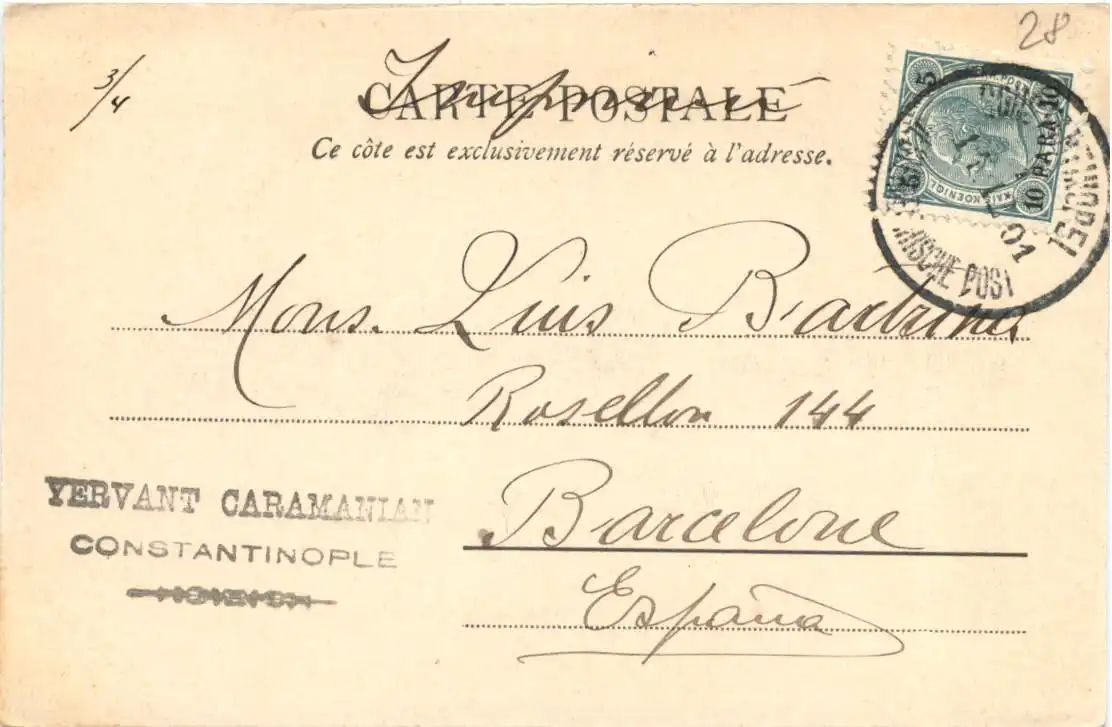 28
3/4
Imprimé
CARTE POSTALE
Ce côte est exclusivement réservé à l'adresse.
10 PARA 10
KAIS. KOENIGL.
5
01
Mons. Luis
Rosellon 144
Barcelone
España
YERVANT CARAMANIAN
CONSTANTINOPLE